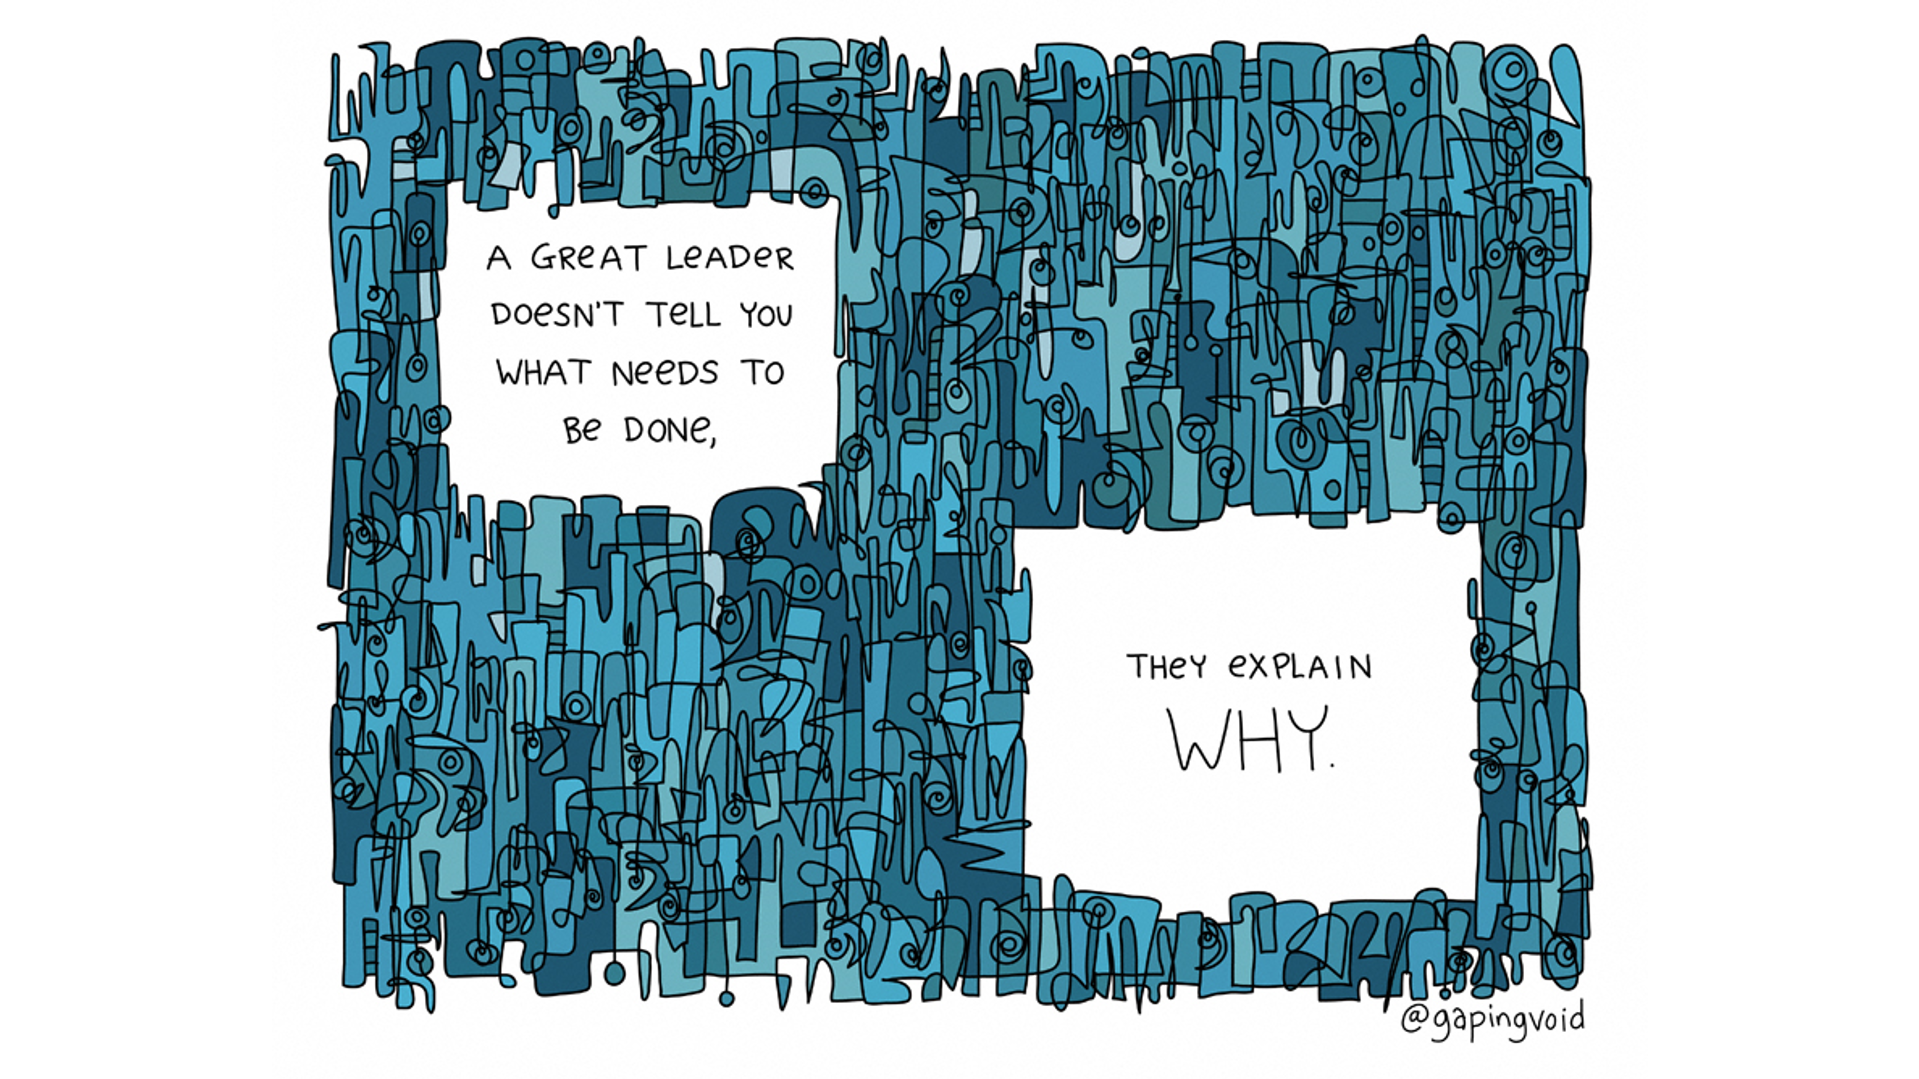 A GREAT LEADER
DOESN'T TELL YOU
WHAT NEEDS TO
BE DONE,
THEY EXPLAIN
WHY.
@gapingvoid